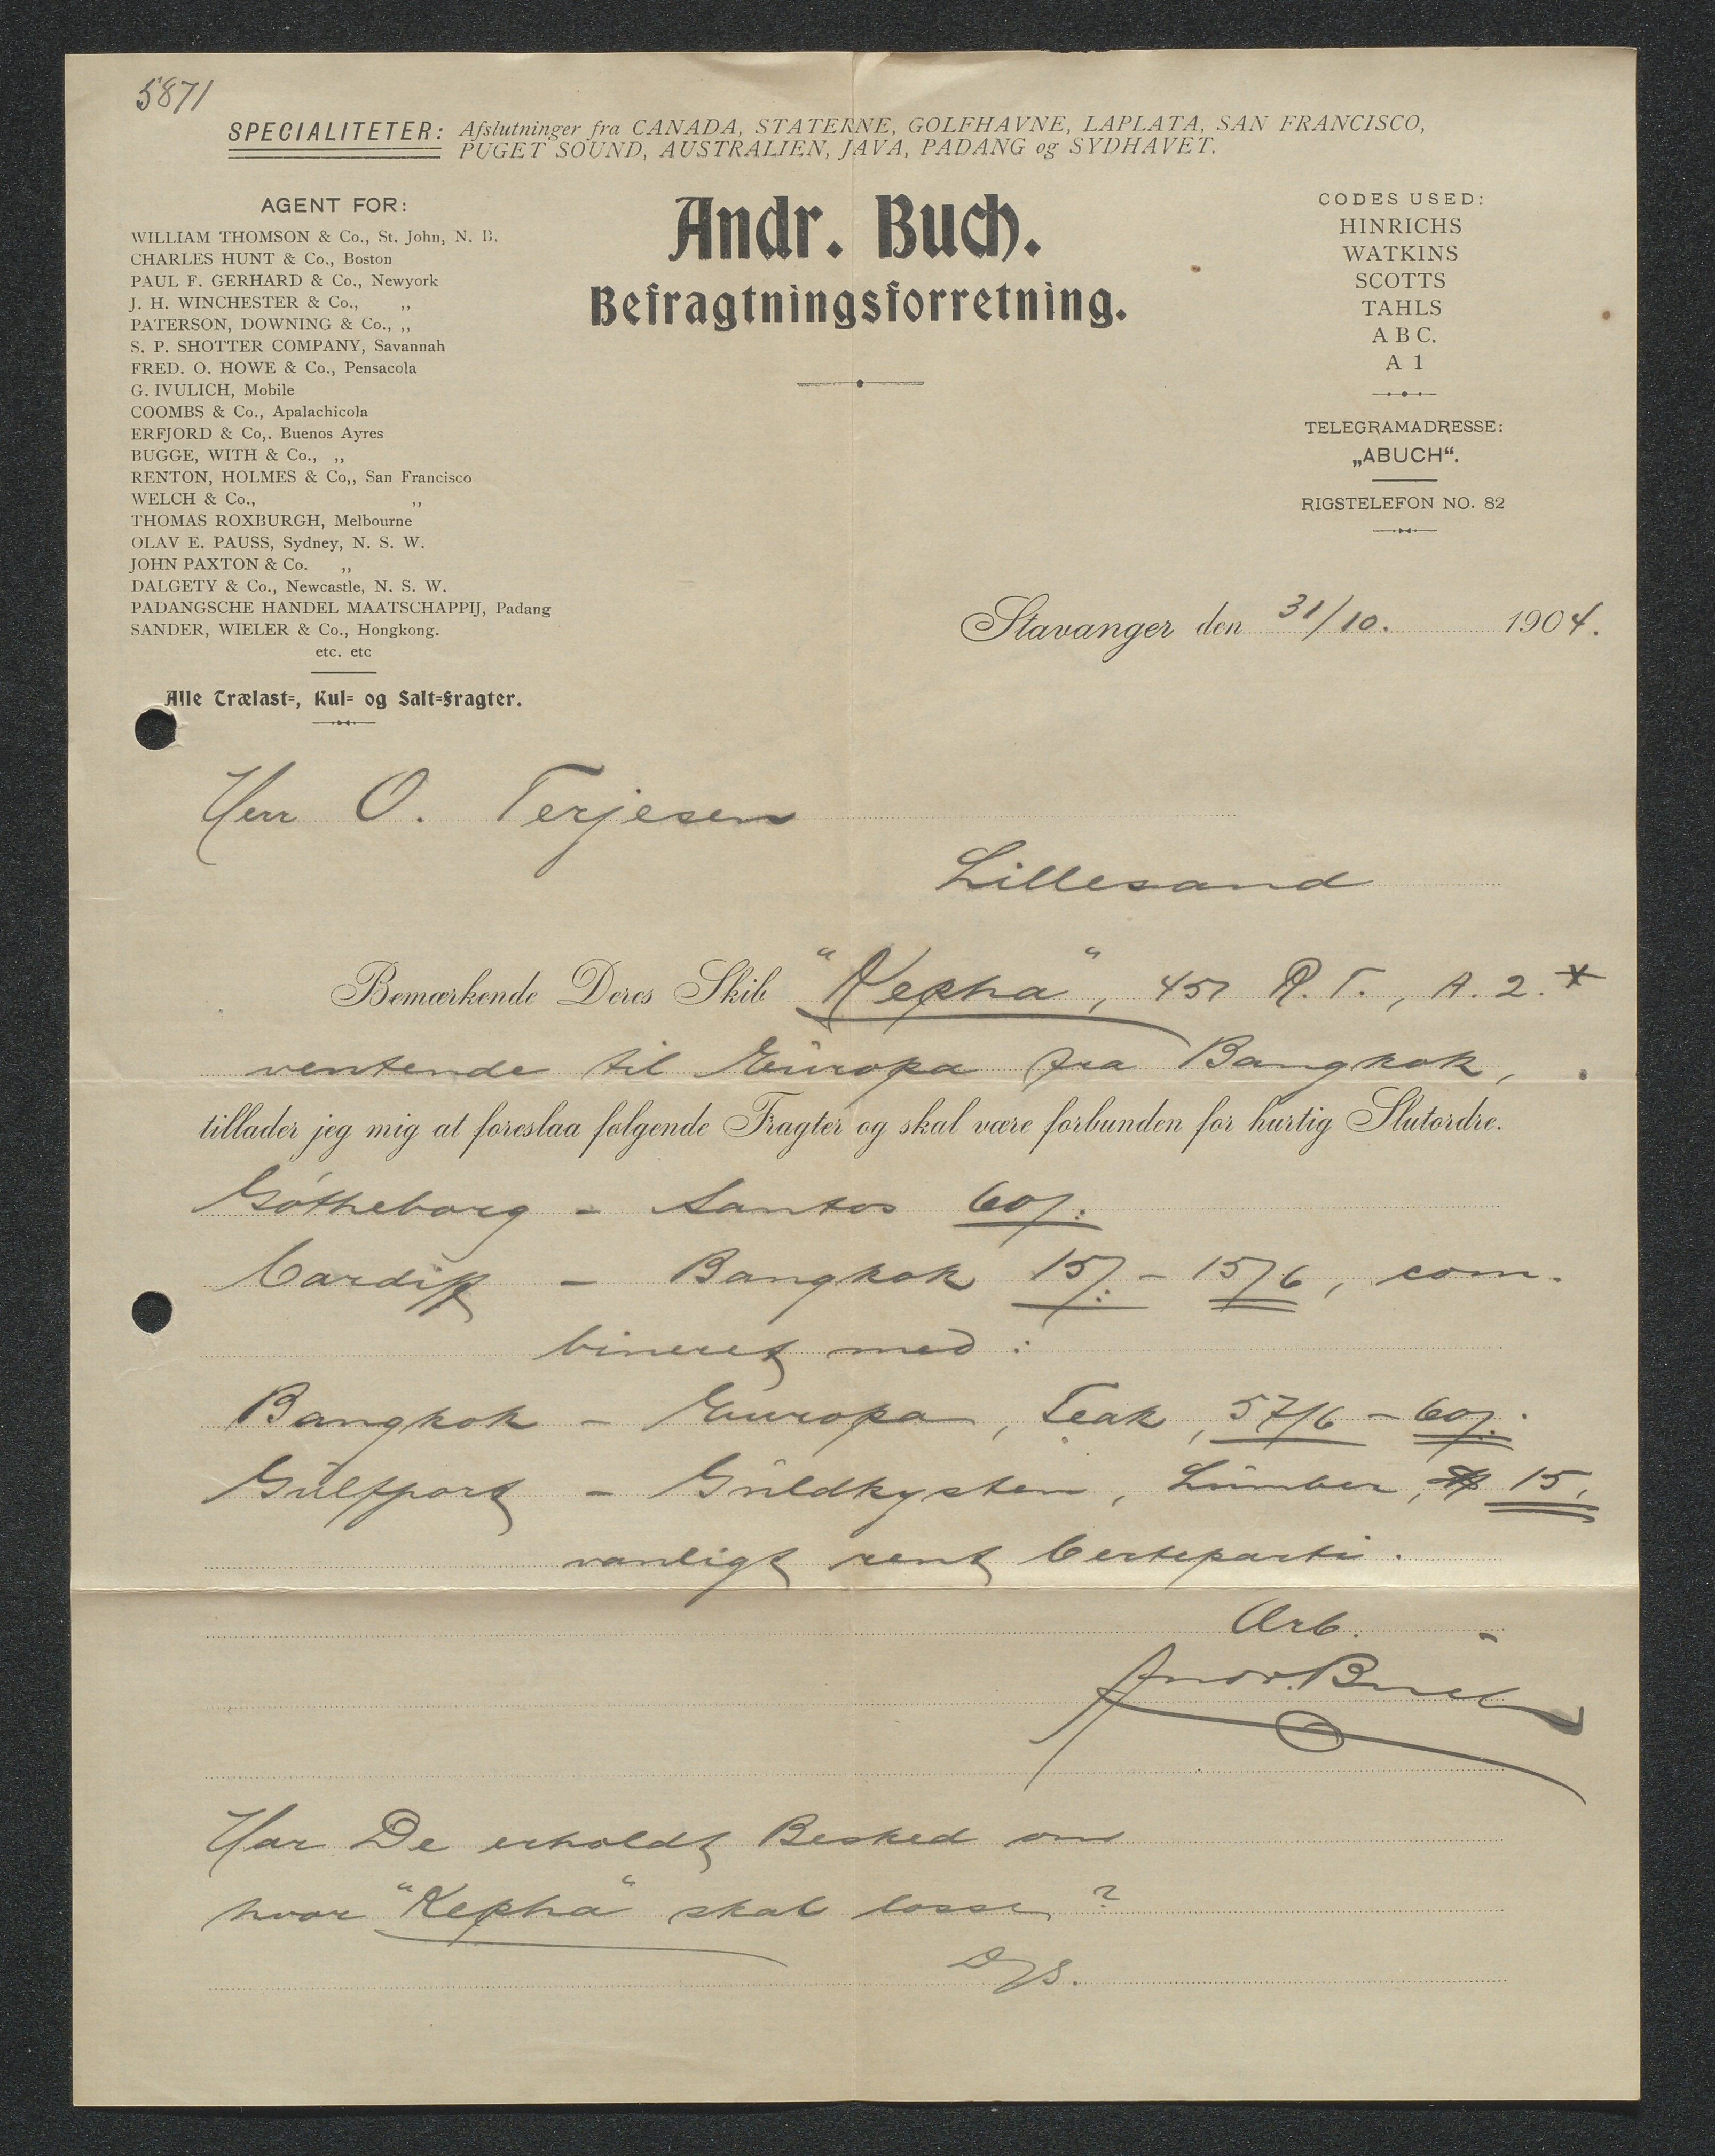 5871
SPECIALITETER: Afslutninger fra CANADA, STATERNE, GOLFHAVNE, LAPLATA, SAN FRANCISCO,
PUGET SOUND, AUSTRALIEN, JAVA, PADANG og SYDHAVET.
AGENT FOR:
WILLIAM THOMSON & Co., St. John, N. B.
CHARLES HUNT & Co., Boston
PAUL F. GERHARD & Co., Newyork
J. H. WINCHESTER & Co., ,,
PATERSON, DOWNING & Co., ,,
S. P. SHOTTER COMPANY, Savannah
FRED. O. HOWE & Co., Pensacola
G. IVULICH, Mobile
COOMBS & Co., Apalachicola
ERFJORD & Co,. Buenos Ayres
BUGGE, WITH & Co., ,,
RENTON, HOLMES & Co,, San Francisco
WELCH & Co., ,,
THOMAS ROXBURGH, Melbourne
OLAV E. PAUSS, Sydney, N. S. W.
JOHN PAXTON & Co. ,,
DALGETY & Co., Newcastle, N. S. W.
PADANGSCHE HANDEL MAATSCHAPPIJ, Padang
SANDER, WIELER & Co., Hongkong.
etc. etc
Alle Trælast-, Kul- og Salt-Fragter.
Andr. Buch.
Befragtningsforretning.
CODES USED:
HINRICHS
WATKINS
SCOTTS
TAHLS
A B C.
A 1
TELEGRAMADRESSE:
„ABUCH“.
RIGSTELEFON NO. 82
Stavanger den 31/10. 1904.
Herr O. Terjesen
Lillesand
Bemærkende Deres Skib "Kepha", 451 R.T., A. 2.*
ventende til Europa fra Bangkok,
tillader jeg mig at foreslaa følgende Fragter og skal være forbunden for hurtig Slutordre.
Götheborg - Santos 60/:
Cardiff - Bangkok 15/: - 15/6, com-
bineret med:
Bangkok - Europa, Teak, 57/6 - 60/:
Gulfport - Guldkysten, Lumber, $ 15.
vanligt rent Certeparti.
Ærb.
Andr. Buch
Har De erholdt Besked om
hvor "Kepha" skal losse?
D/S.